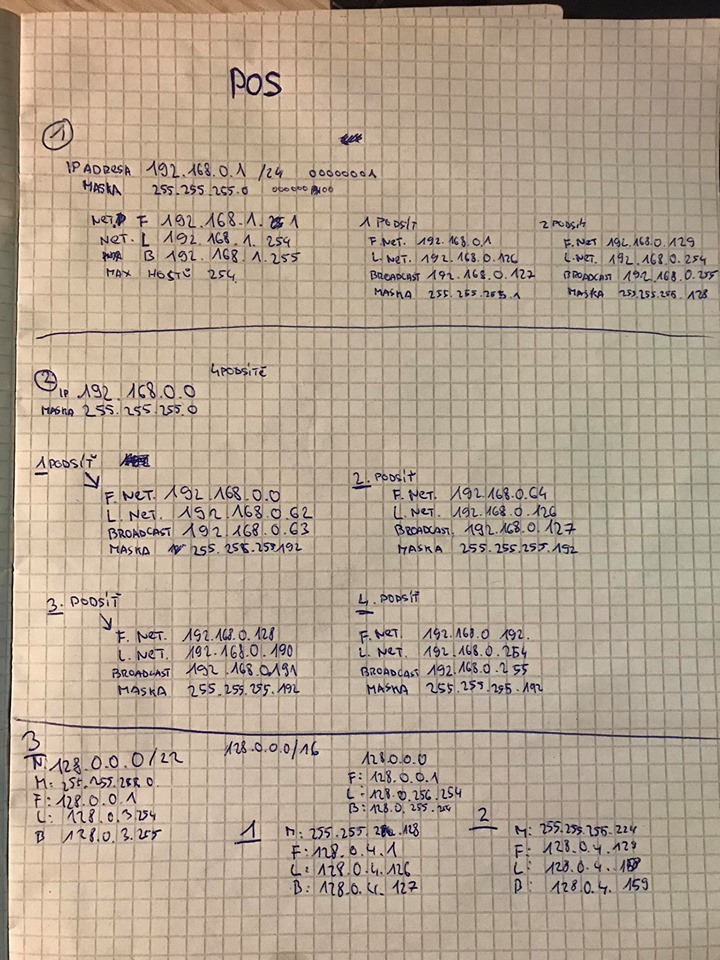 POS
1
IP ADRESA 192.168.0.1 /24 00000001
MASKA 255.255.255.0
NET. F 192.168.1. 1
NET. L 192.168.1. 254
B 192.168.1.255
MAX HOSTŮ 254
1 PODSÍŤ
F. NET. 192.168.0.1
L. NET. 192.168.0.126
BROADCAST 192.168.0.127
MASKA 255.255.255.1
2 PODSÍŤ
F. NET 192.168.0.129
L. NET. 192.168.0.254
BROADCAST 192.168.0.255
MASKA 255.255.255.128
4 PODSÍTĚ
2
IP 192.168.0.0
MASKA 255.255.255.0
1 PODSÍŤ
F. NET. 192.168.0.0
L. NET. 192.168.0.62
BROADCAST 192.168.0.63
MASKA 255.255.255.192
2. PODSÍŤ
F. NET. 192.168.0.64
L. NET. 192.168.0.126
BROADCAST. 192.168.0.127
MASKA 255.255.255.192
3. PODSÍŤ
F. NET. 192.168.0.128
L. NET. 192.168.0.190
BROADCAST 192.168.0.191
MASKA 255.255.255.192
4. PODSÍŤ
F. NET. 192.168.0 192.
L. NET. 192.168.0.254
BROADCAST 192.168.0.255
MASKA 255.255.255.192
3
N: 128.0.0.0/22
M: 255.255.252.0
F: 128.0.0.1
L: 128.0.3.254
B 128.0.3.255
128.0.0.0/16
128.0.0.0
F: 128.0.0.1
L: 128.0.256.254
B: 128.0.255.
1
M: 255.255. .128
F: 128.0.4.1
L: 128.0.4.126
B: 128.0.4.127
2
M: 255.255.255.224
F: 128.0.4.129
L: 128.0.4.
B: 128.0.4.159